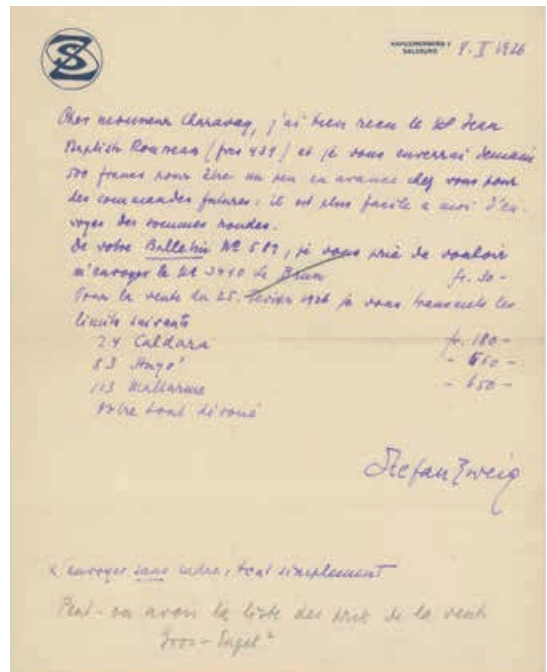 SZ
KAPUZINERBERG 5
SALZBURG
8. II 1926
Cher monsieur Charavay, j'ai bien reçu le Jean
Baptiste Rousseau (frcs 431) et je vous enverrai demain
500 francs pour être un peu en avance chez vous pour
des commandes futures: il est plus facile a moi d'en-
voyer des sommes rondes.
De votre Bulletin No 581, je vous prie de vouloir
m'envoyer le Le Brun fr. 30-
Pour la vente du 25. février 1926 je vous transmets les
limits suivants
24 Caldara fr. 180-
83 Hugo
113 Mallarmé - 650-
Votre tout dévoué
Stefan Zweig
x envoyer sans cadre, tout simplement
Peut-on avoir la liste des prix de la vente